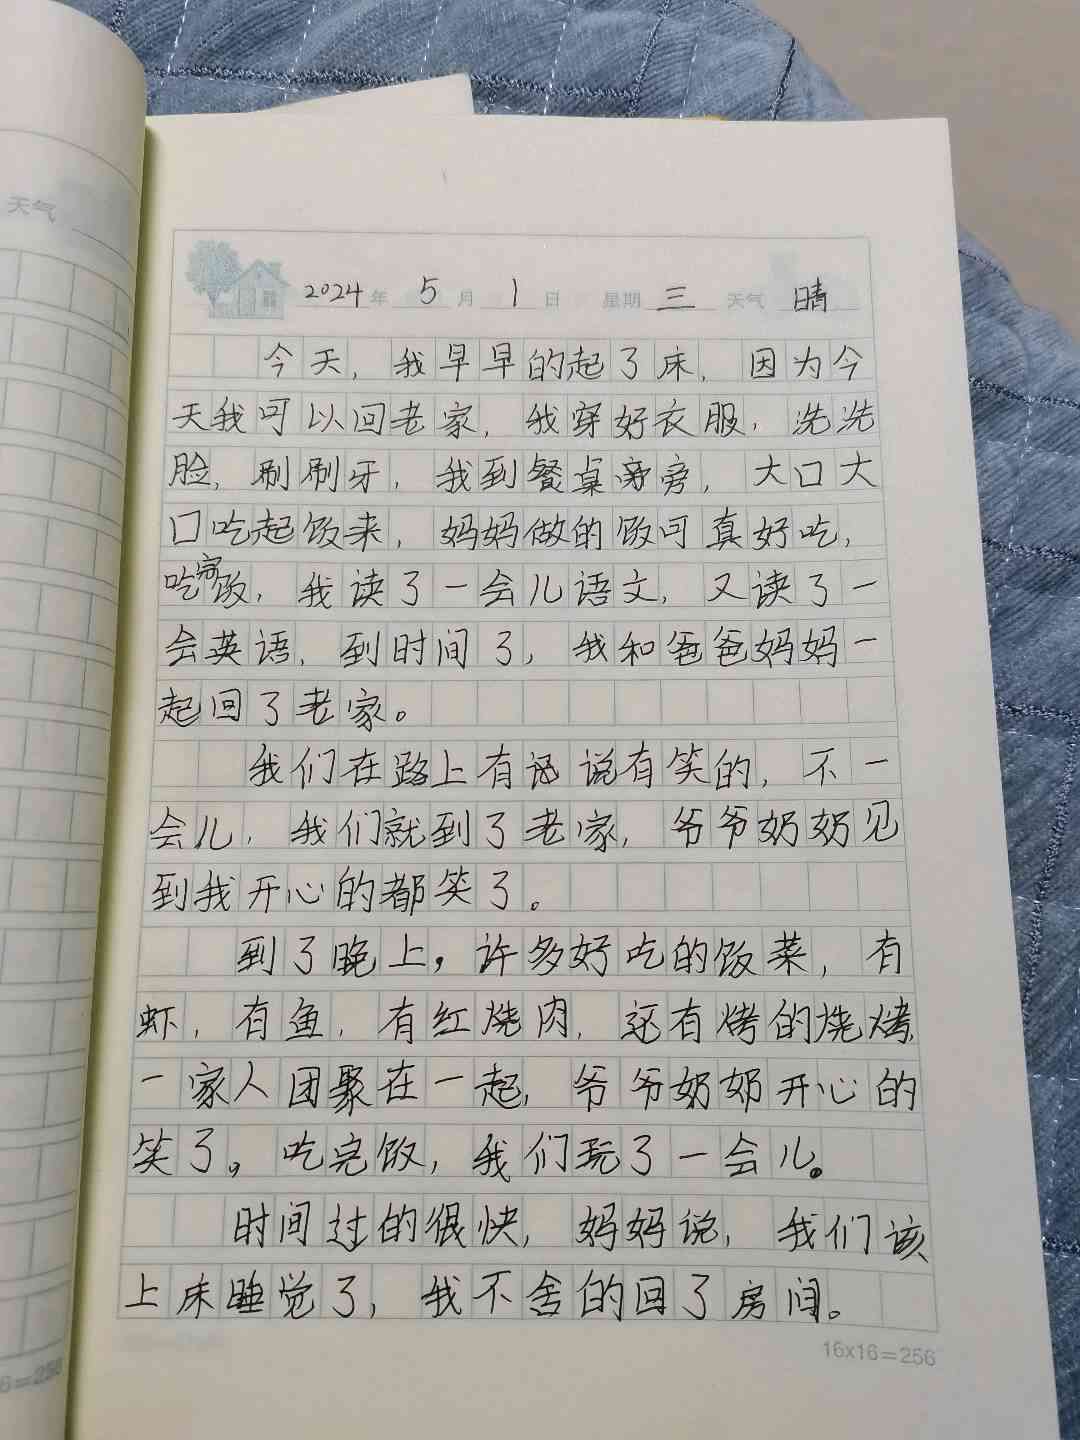 天气
2024年 5月 1日 星期 三 天气 晴
今天，我早早的起了床，因为今
天我可以回老家，我穿好衣服，洗洗
脸，刷刷牙，我到餐桌旁，大口大
口吃起饭来，妈妈做的饭可真好吃，
吃完饭，我读了一会儿语文，又读了一
会英语，到时间了，我和爸爸妈妈一
起回了老家。
我们在路上有说有笑的，不一
会儿，我们就到了老家，爷爷奶奶见
到我开心的都笑了。
到了晚上，许多好吃的饭菜，有
虾，有鱼，有红烧肉，还有烤的烧烤，
一家人团聚在一起，爷爷奶奶开心的
笑了。吃完饭，我们玩了一会儿。
时间过的很快，妈妈说，我们该
上床睡觉了，我不舍的回了房间。
16x16=256
6=256